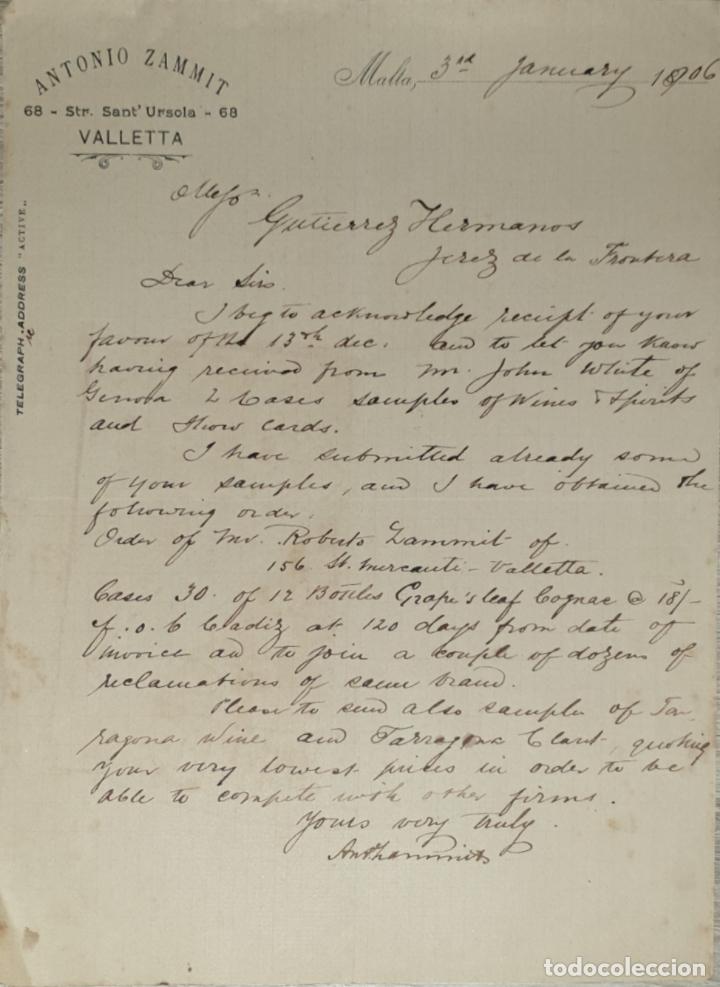 ANTONIO ZAMMIT
68 - Str. Sant' Ursola - 68
VALLETTA
TELEGRAPH-ADDRESS "ACTIVE"
Malta, 3rd January 1906
Messrs
Gutierrez Hermanos
Jerez de la Frontera
Dear Sirs
I beg to acknowledge receipt of your
favour of the 13th dec. and to let you know
having received from Mr. John White of
Genova 2 Cases samples of Wines & Spirits
and Show cards.
I have submitted already some
of your samples, and I have obtained the
following order.
Order of Mr. Roberto Zammit of
156 St. Mercanti - Valletta.
Cases 30. of 12 Bottles Grape's leaf Cognac @ 18/-
f.o.b Cadiz at 120 days from date of
invoice and to join a couple of dozens of
reclamations of same brand.
Please to send also samples of Tar-
ragona Wine and Tarragona Claret, quoting
your very lowest prices in order to be
able to compete with other firms.
Yours very truly.
Ant Zammit
todocoleccion.net